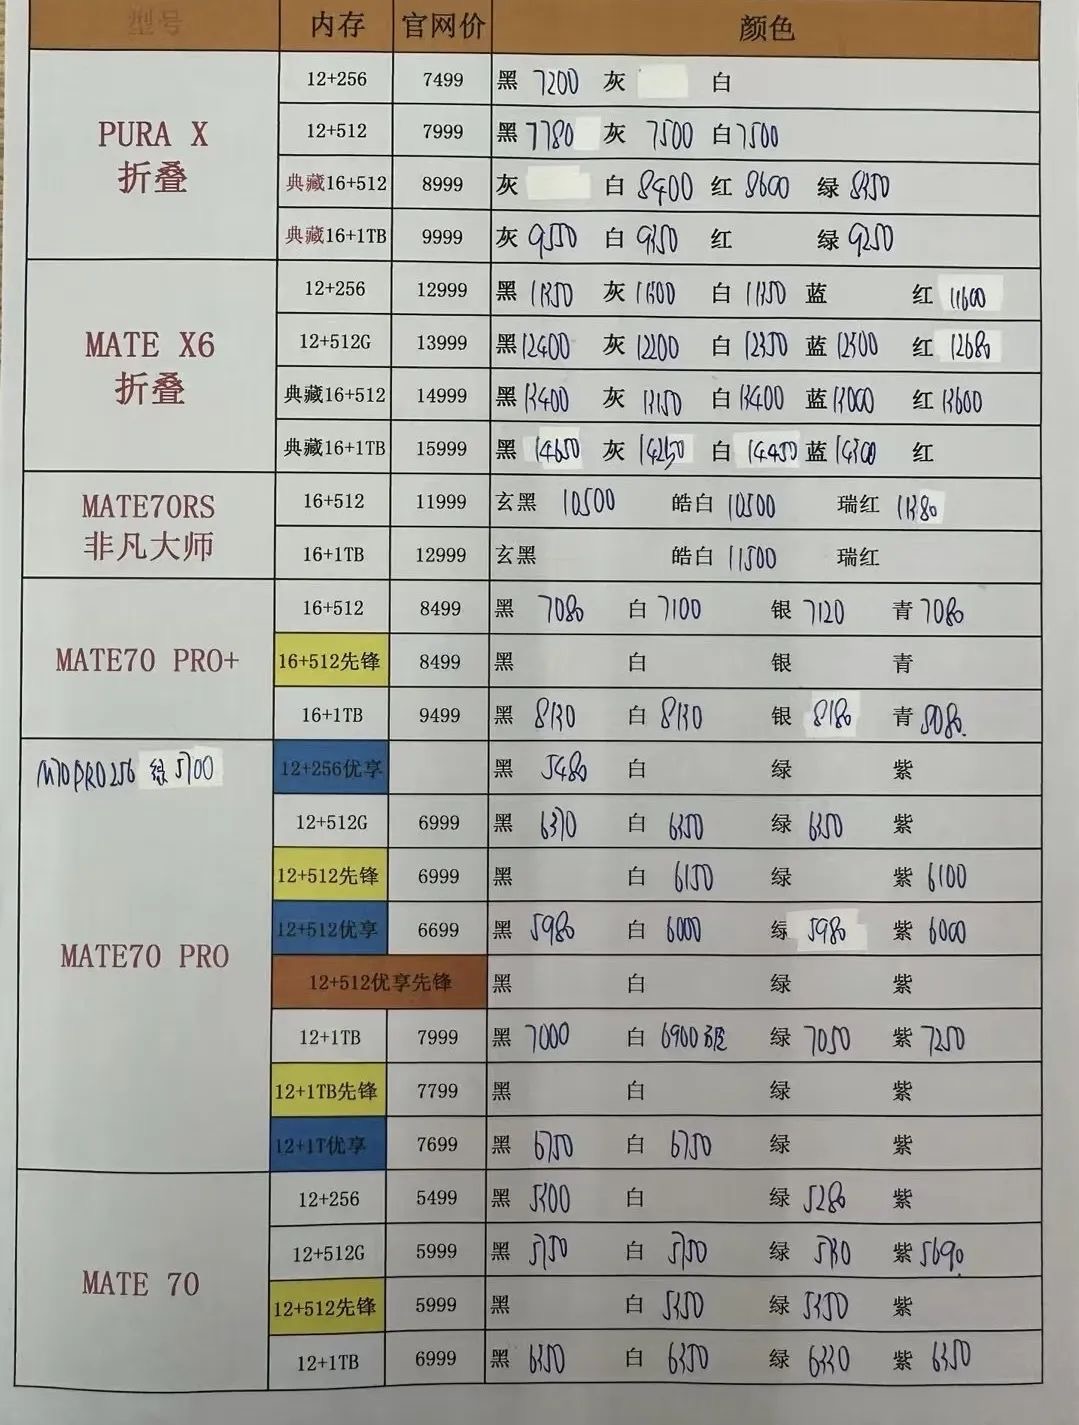 型号 内存 官网价 颜色
PURA X
折叠
12+256 7499 黑 7200 灰 白
12+512 7999 黑 7780 灰 7500 白 7500
典藏16+512 8999 灰 白 8400 红 8600 绿 8350
典藏16+1TB 9999 灰 9550 白 9350 红 绿 9250
MATE X6
折叠
12+256 12999 黑 11350 灰 11300 白 11350 蓝 红 11600
12+512G 13999 黑 12400 灰 12200 白 12350 蓝 12300 红 12680
典藏16+512 14999 黑 13400 灰 13150 白 13400 蓝 13000 红 13600
典藏16+1TB 15999 黑 14650 灰 14250 白 14450 蓝 14300 红
MATE70RS
非凡大师
16+512 11999 玄黑 10500 皓白 10500 瑞红 11380
16+1TB 12999 玄黑 皓白 11500 瑞红
MATE70 PRO+
16+512 8499 黑 7080 白 7100 银 7120 青 7080
16+512先锋 8499 黑 白 银 青
16+1TB 9499 黑 8130 白 8130 银 8180 青 8080.
M70PRO256 绿 5700
MATE70 PRO
12+256优享 黑 5480 白 绿 紫
12+512G 6999 黑 6370 白 6350 绿 6350 紫
12+512先锋 6999 黑 白 6150 绿 紫 6100
12+512优享 6699 黑 5980 白 6000 绿 5980 紫 6000
12+512优享先锋 黑 白 绿 紫
12+1TB 7999 黑 7000 白 6900 绿 7050 紫 7250
12+1TB先锋 7799 黑 白 绿 紫
12+1T优享 7699 黑 6750 白 6750 绿 紫
MATE 70
12+256 5499 黑 5300 白 绿 5280 紫
12+512G 5999 黑 5750 白 5750 绿 紫 5690.
12+512先锋 5999 黑 白 5350 绿 5350 紫
12+1TB 6999 黑 6350 白 6350 绿 6330 紫 6350